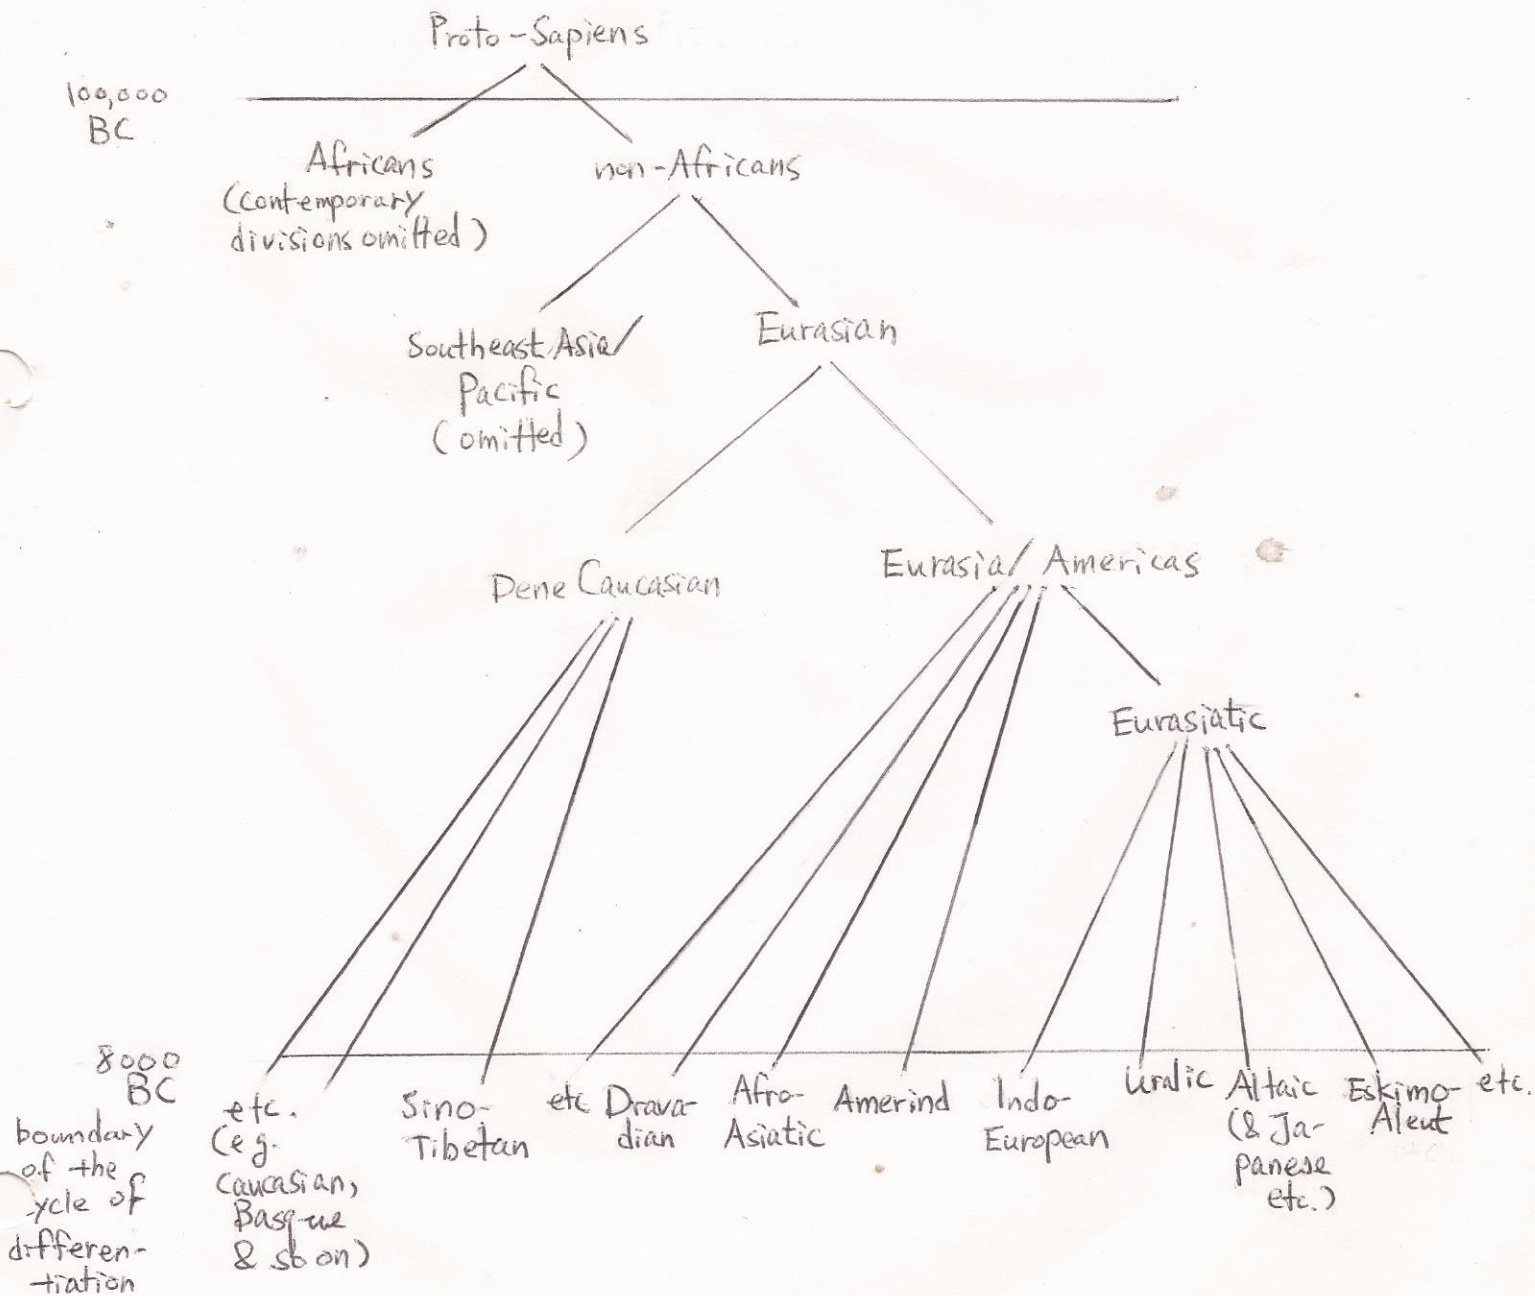 Proto-Sapiens
100,000
BC
Africans
(contemporary
divisions omitted)
non-Africans
Southeast Asia/
Pacific
(omitted)
Eurasian
Dene Caucasian
Eurasia/Americas
Eurasiatic
8000
BC
boundary
of the
ycle of
differen-
tiation
etc.
(eg.
Caucasian,
Basque
& so on)
Sino-
Tibetan
etc
Drava-
dian
Afro-
Asiatic
Amerind
Indo-
European
Uralic
Altaic
(& Ja-
panese
etc.)
Eskimo-
Aleut
etc.